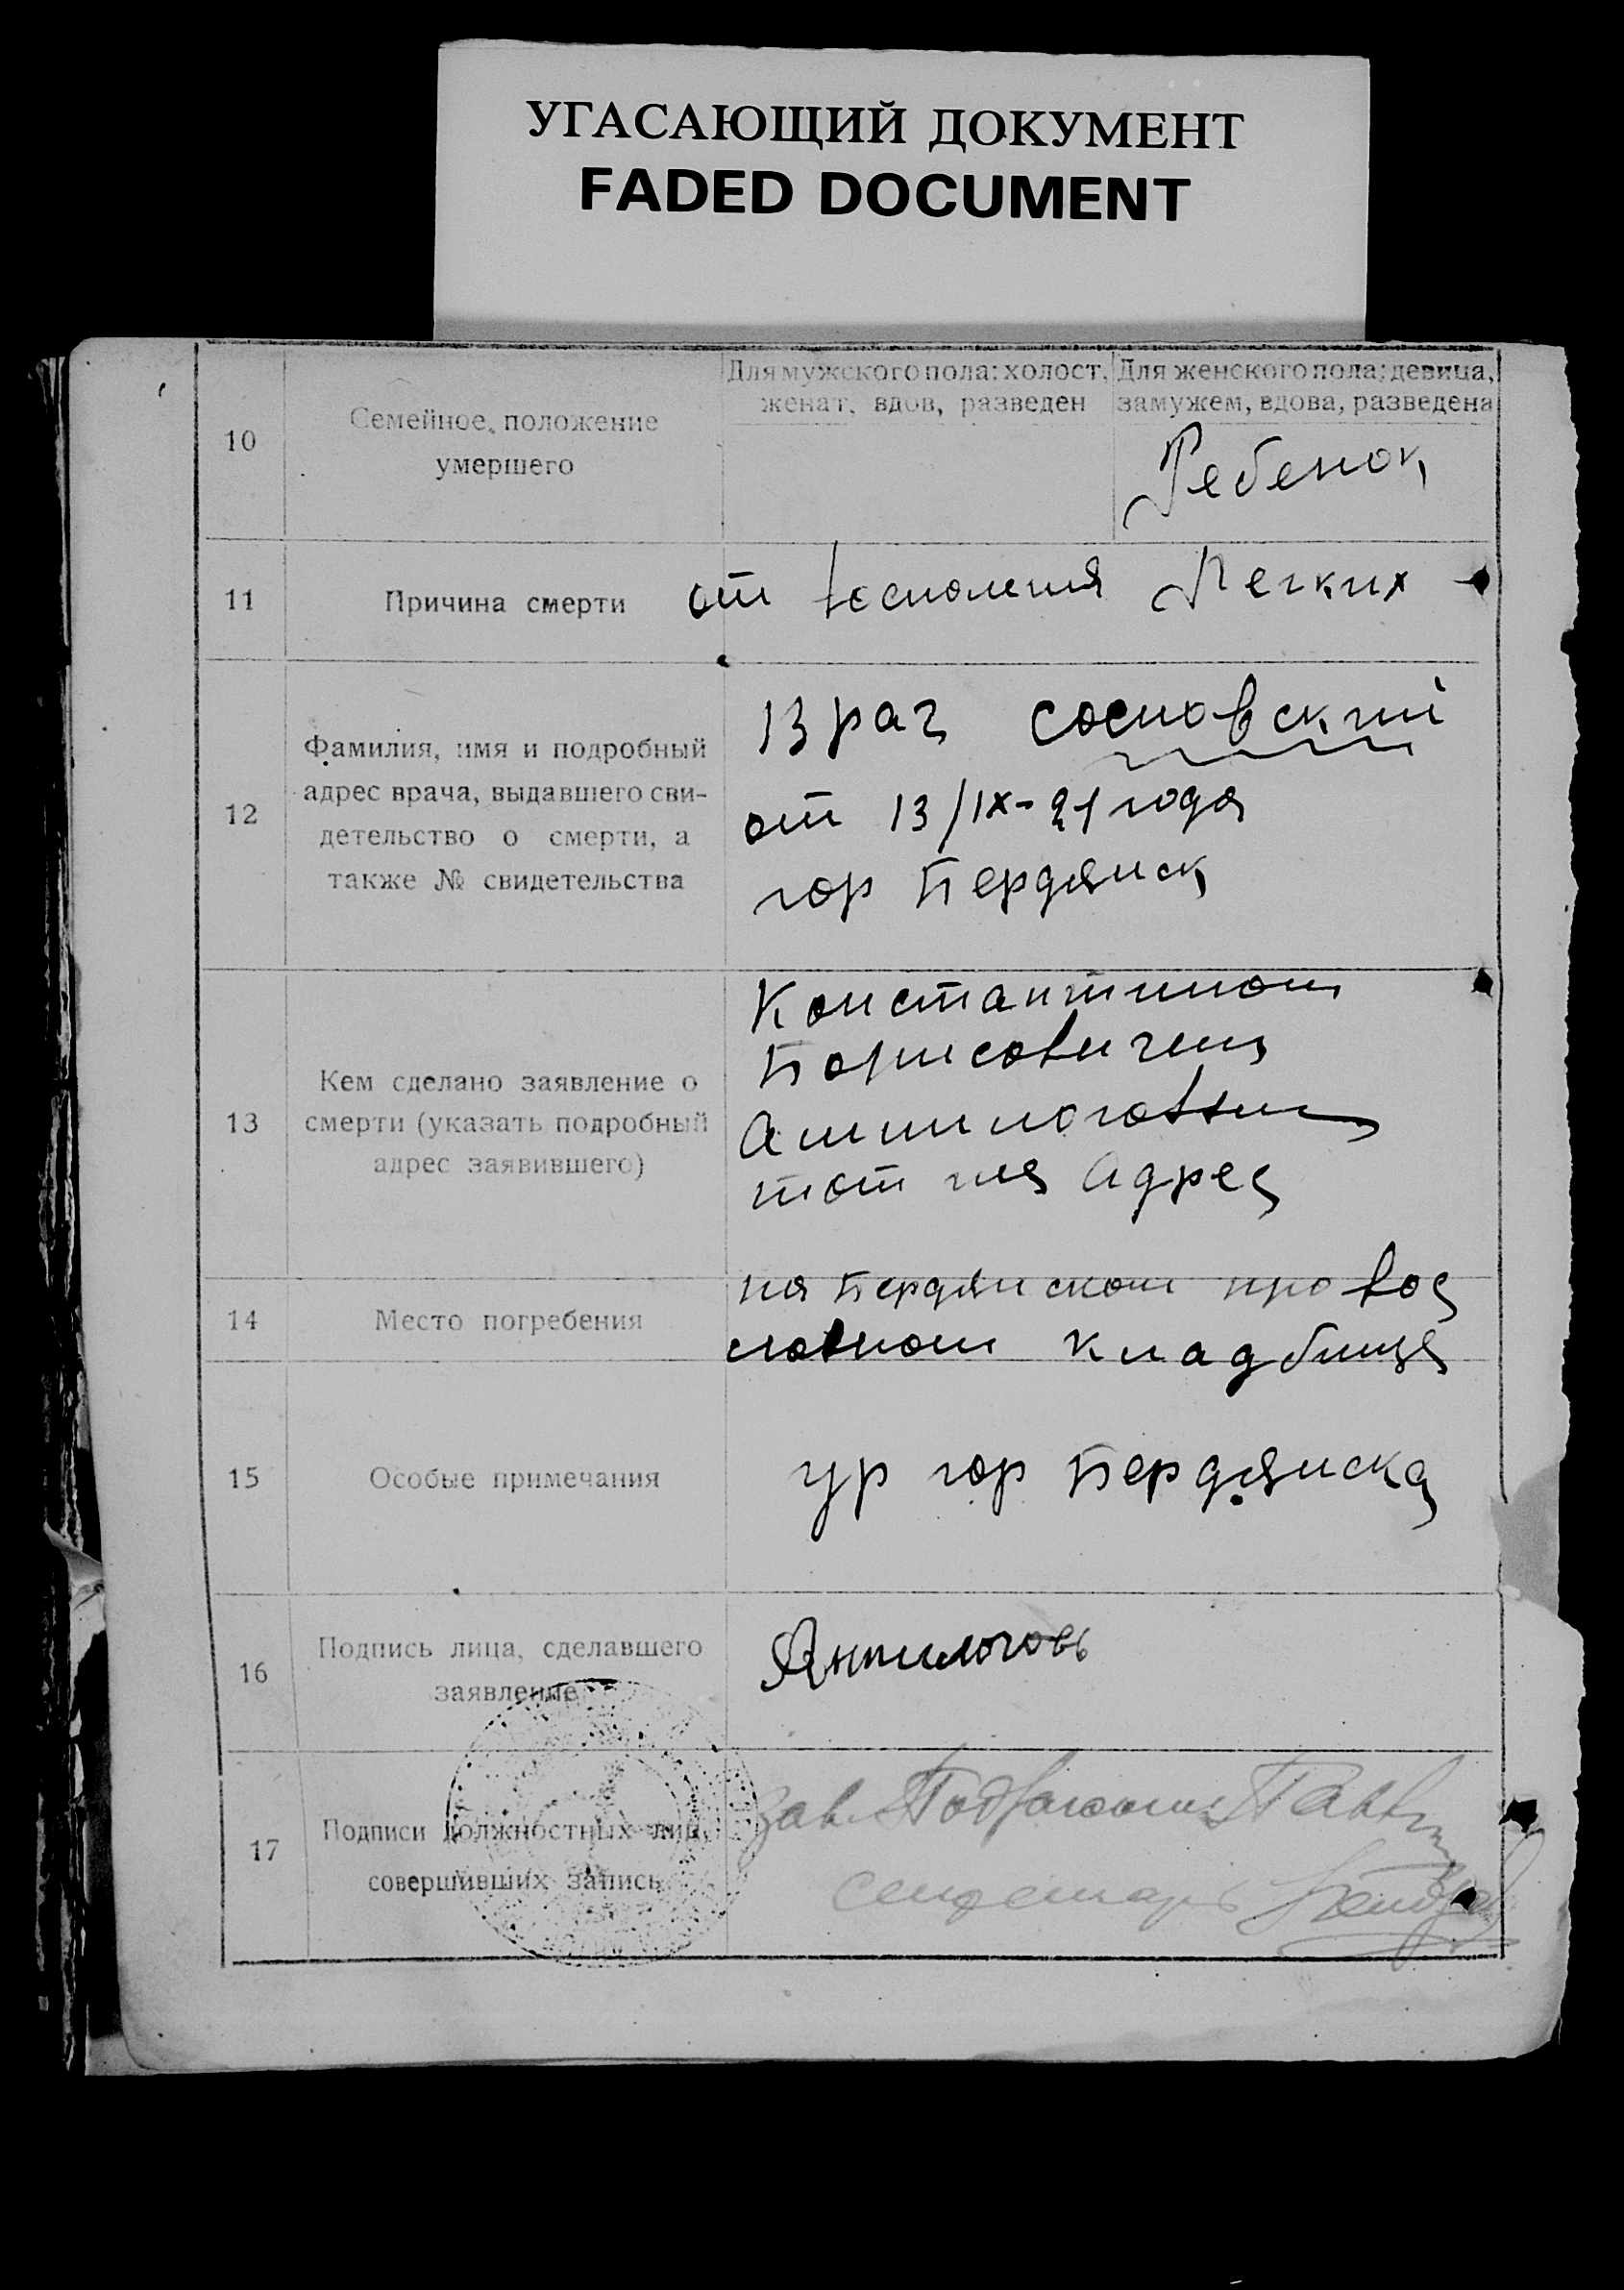 УГАСАЮЩИЙ ДОКУМЕНТ
FADED DOCUMENT
10
Семейное положение
умершего
Для мужского пола: холост,
женат, вдов, разведен
Для женского пола: девица,
замужем, вдова, разведена
Ребенок
11
Причина смерти
от Легких
12
Фамилия, имя и подробный
адрес врача, выдавшего сви-
детельство о смерти, а
также № свидетельства
Врач Сосновский
от 13/IX-21 года
гор Бердянск
13
Кем сделано заявление о
смерти (указать подробный
адрес заявившего)
Константином
Борисовичем
Анпилоговым
тот адрес
14
Место погребения
на Бердянском провос
славном кладбище
15
Особые примечания
гор Бердянска
16
Подпись лица, сделавшего
заявление
Анпилоговъ
17
Подписи должностных лиц,
совершивших запись
Зав.
секретарь